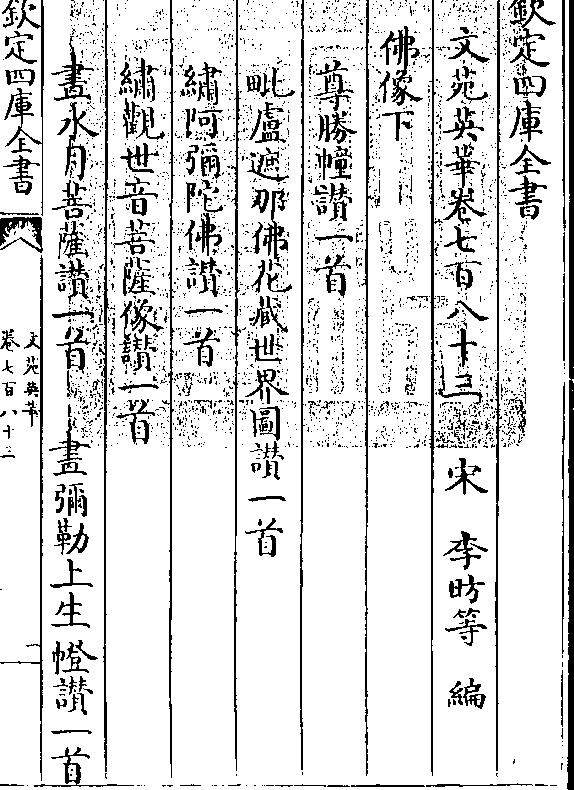 欽定四庫全書
文苑英華卷七百八十三 宋 李昉等 編
佛像下
尊勝幢讚一首
毗盧遮那佛花藏世界圖讚一首
繡阿彌陀佛讚一首
繡觀世音菩薩像讚一首
畫水月菩薩讚一首 畫彌勒上生㡧讚一首
欽定四庫全書
文苑英華
卷七百八十三
一